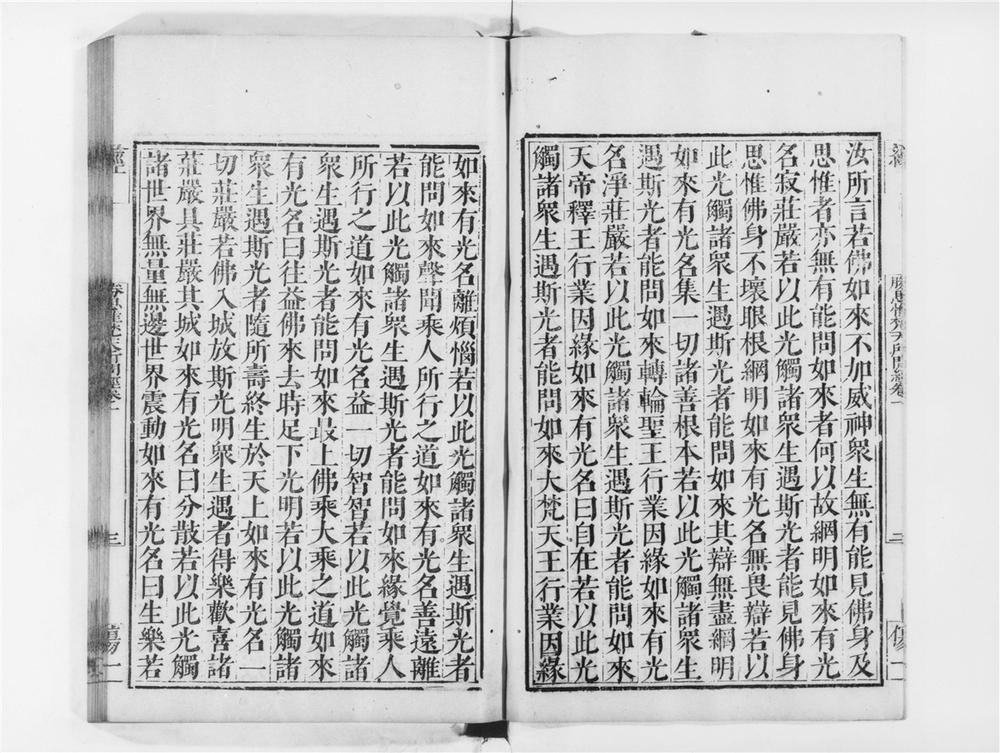 汝所言若佛如來不加威神眾生無有能見佛身及
思惟者亦無有能問如來者何以故網明如來有光
名寂莊嚴若以此光觸諸眾生遇斯光者能見佛身
思惟佛身不壞眼根網明如來有光名無畏辯若以
此光觸諸眾生遇斯光者能問如來其辯無盡網明
如來有光名集一切諸善根本若以此光觸諸眾生
遇斯光者能問如來轉輪聖王行業因緣如來有光
名淨莊嚴若以此光觸諸眾生遇斯光者能問如來
天帝釋王行業因緣如來有光名曰自在若以此光
觸諸眾生遇斯光者能問如來大梵天王行業因緣
如來有光名離煩惱若以此光觸諸眾生遇斯光者
能問如來聲聞乘人所行之道如來有光名善遠離
若以此光觸諸眾生遇斯光者能問如來緣覺乘人
所行之道如來有光名益一切智智若以此光觸諸
眾生遇斯光者能問如來最上佛乘大乘之道如來
有光名曰往益佛來去時足下光明若以此光觸諸
眾生遇斯光者隨所壽終生於天上如來有光名一
切莊嚴若佛入城放斯光明眾生遇者得樂歡喜諸
莊嚴具莊嚴其城如來有光名曰分散若以此光觸
諸世界無量無邊世界震動如來有光名曰生樂若